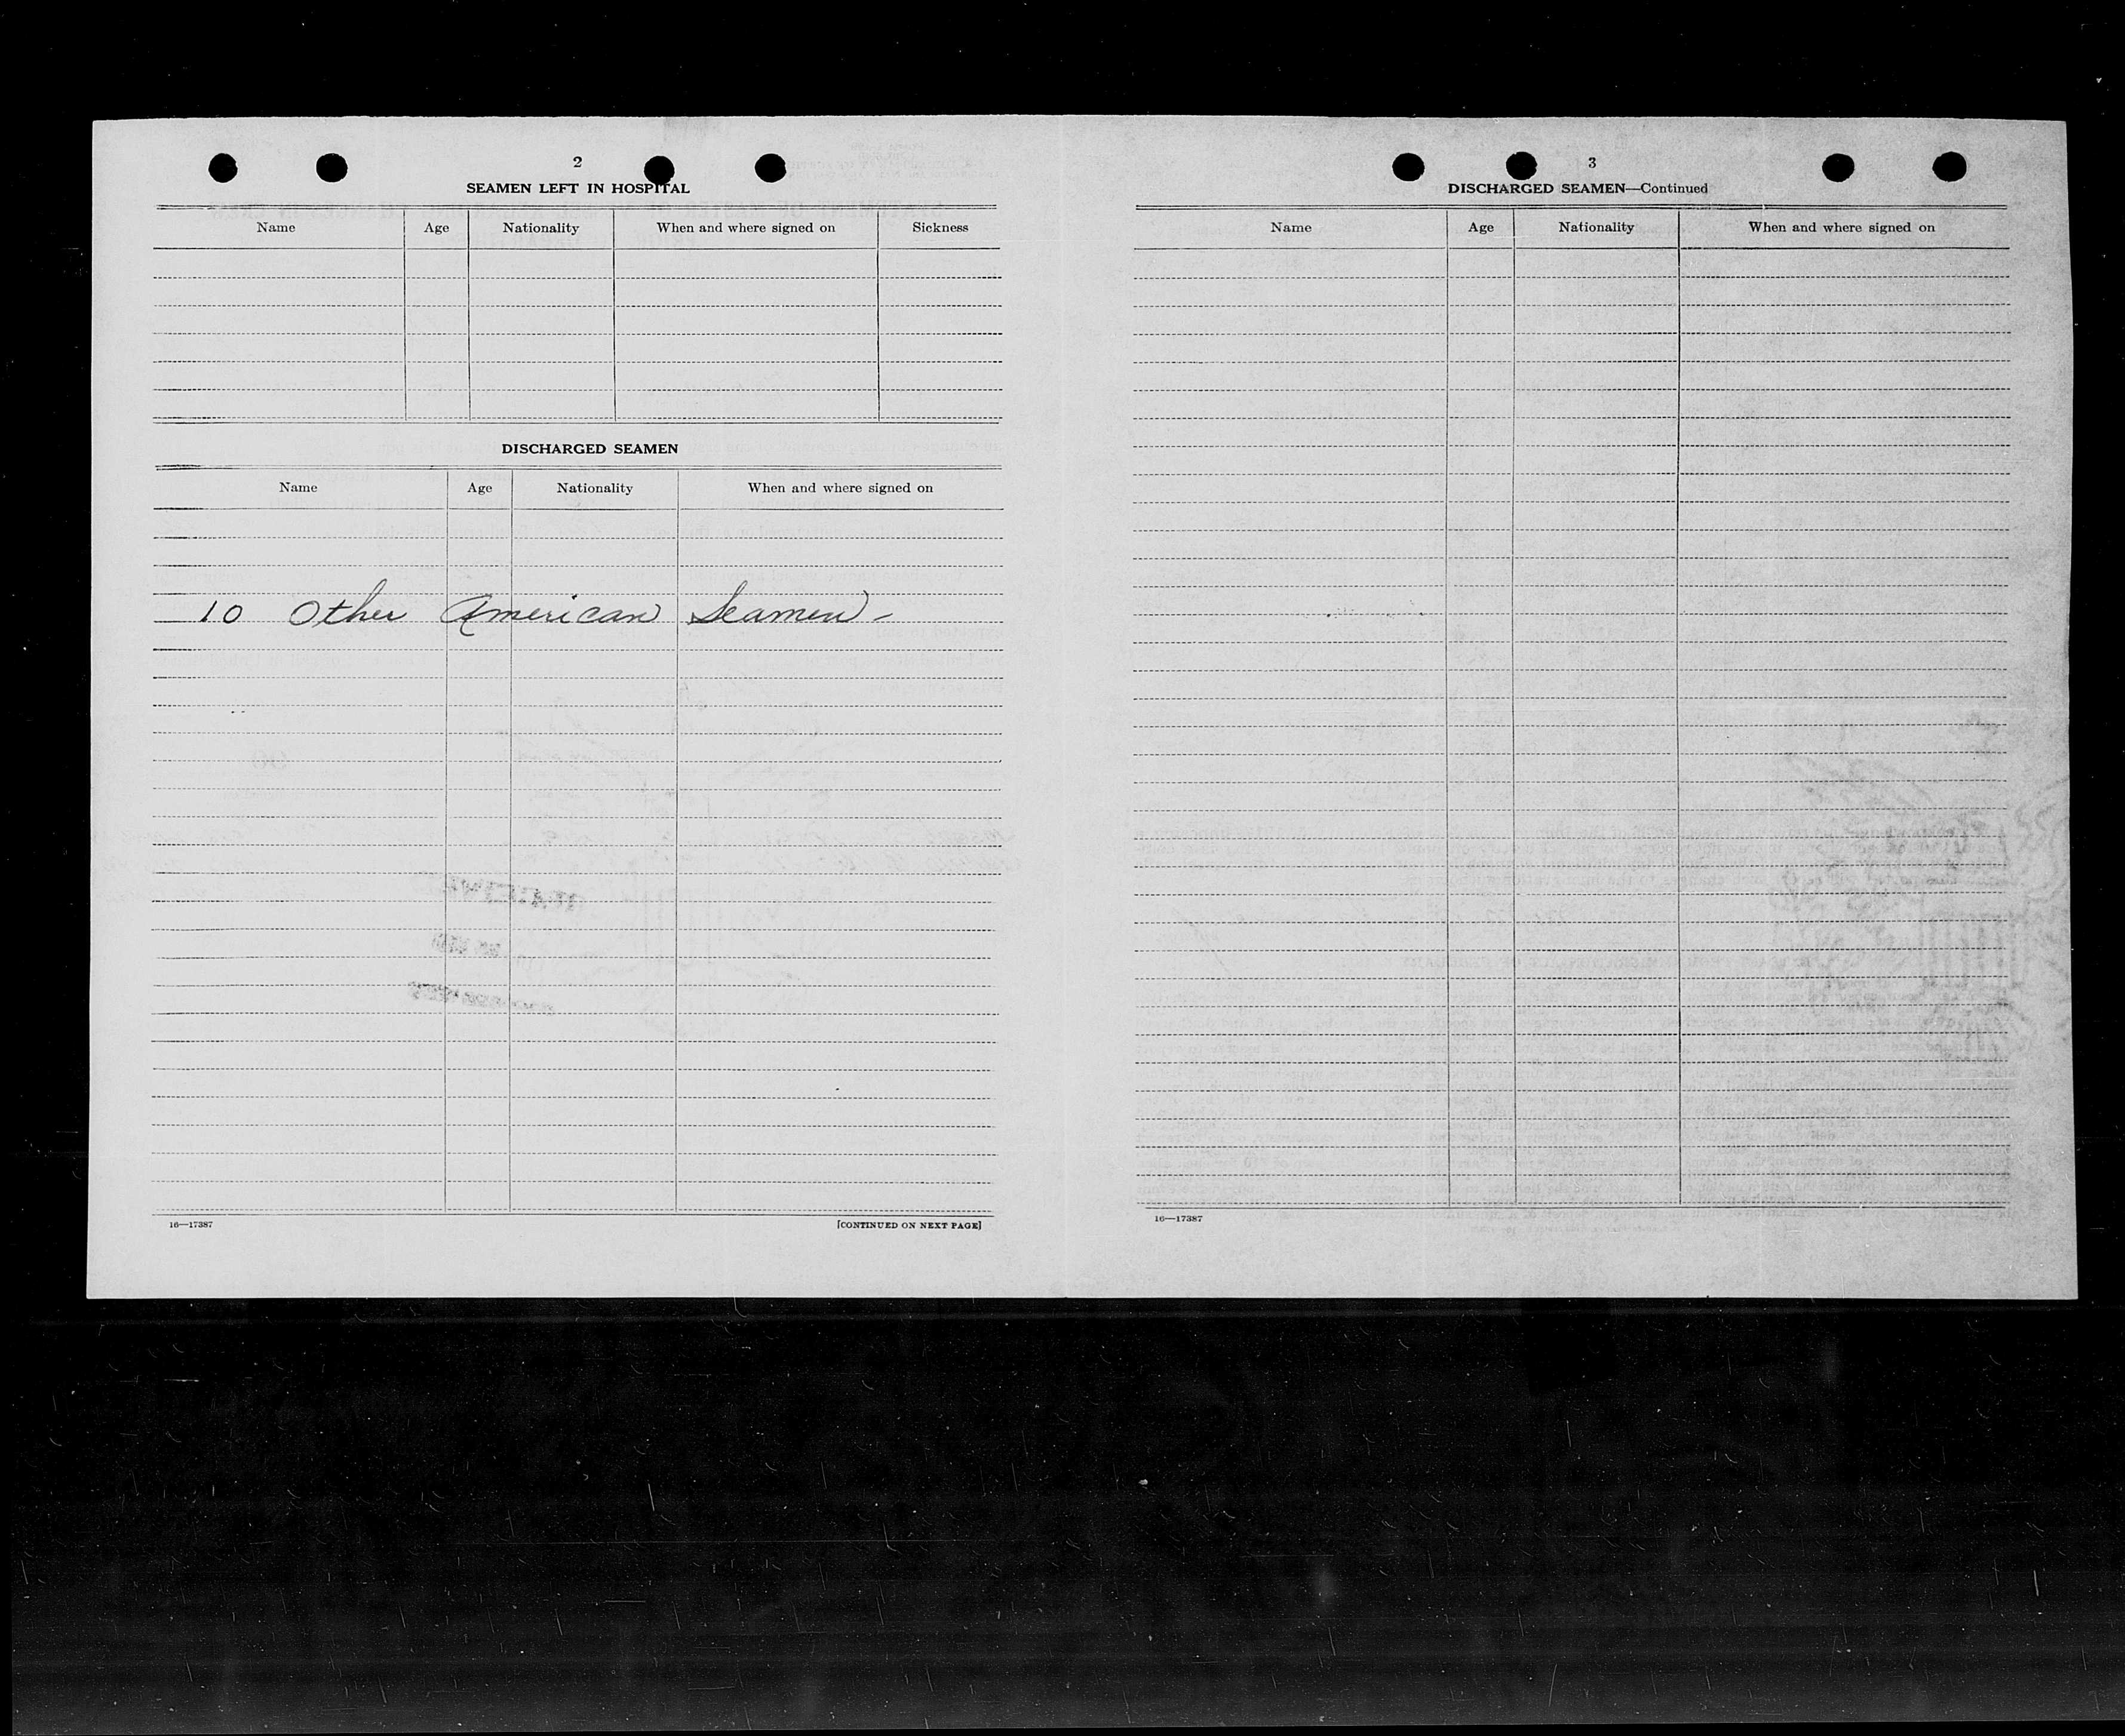 2
SEAMEN LEFT IN HOSPITAL
Name Age Nationality When and where signed on Sickness
DISCHARGED SEAMEN
Name Age Nationality When and where signed on
10 Other American Seamen -
16—17387 [CONTINUED ON NEXT PAGE]
3
DISCHARGED SEAMEN—Continued
Name Age Nationality When and where signed on
16—17387